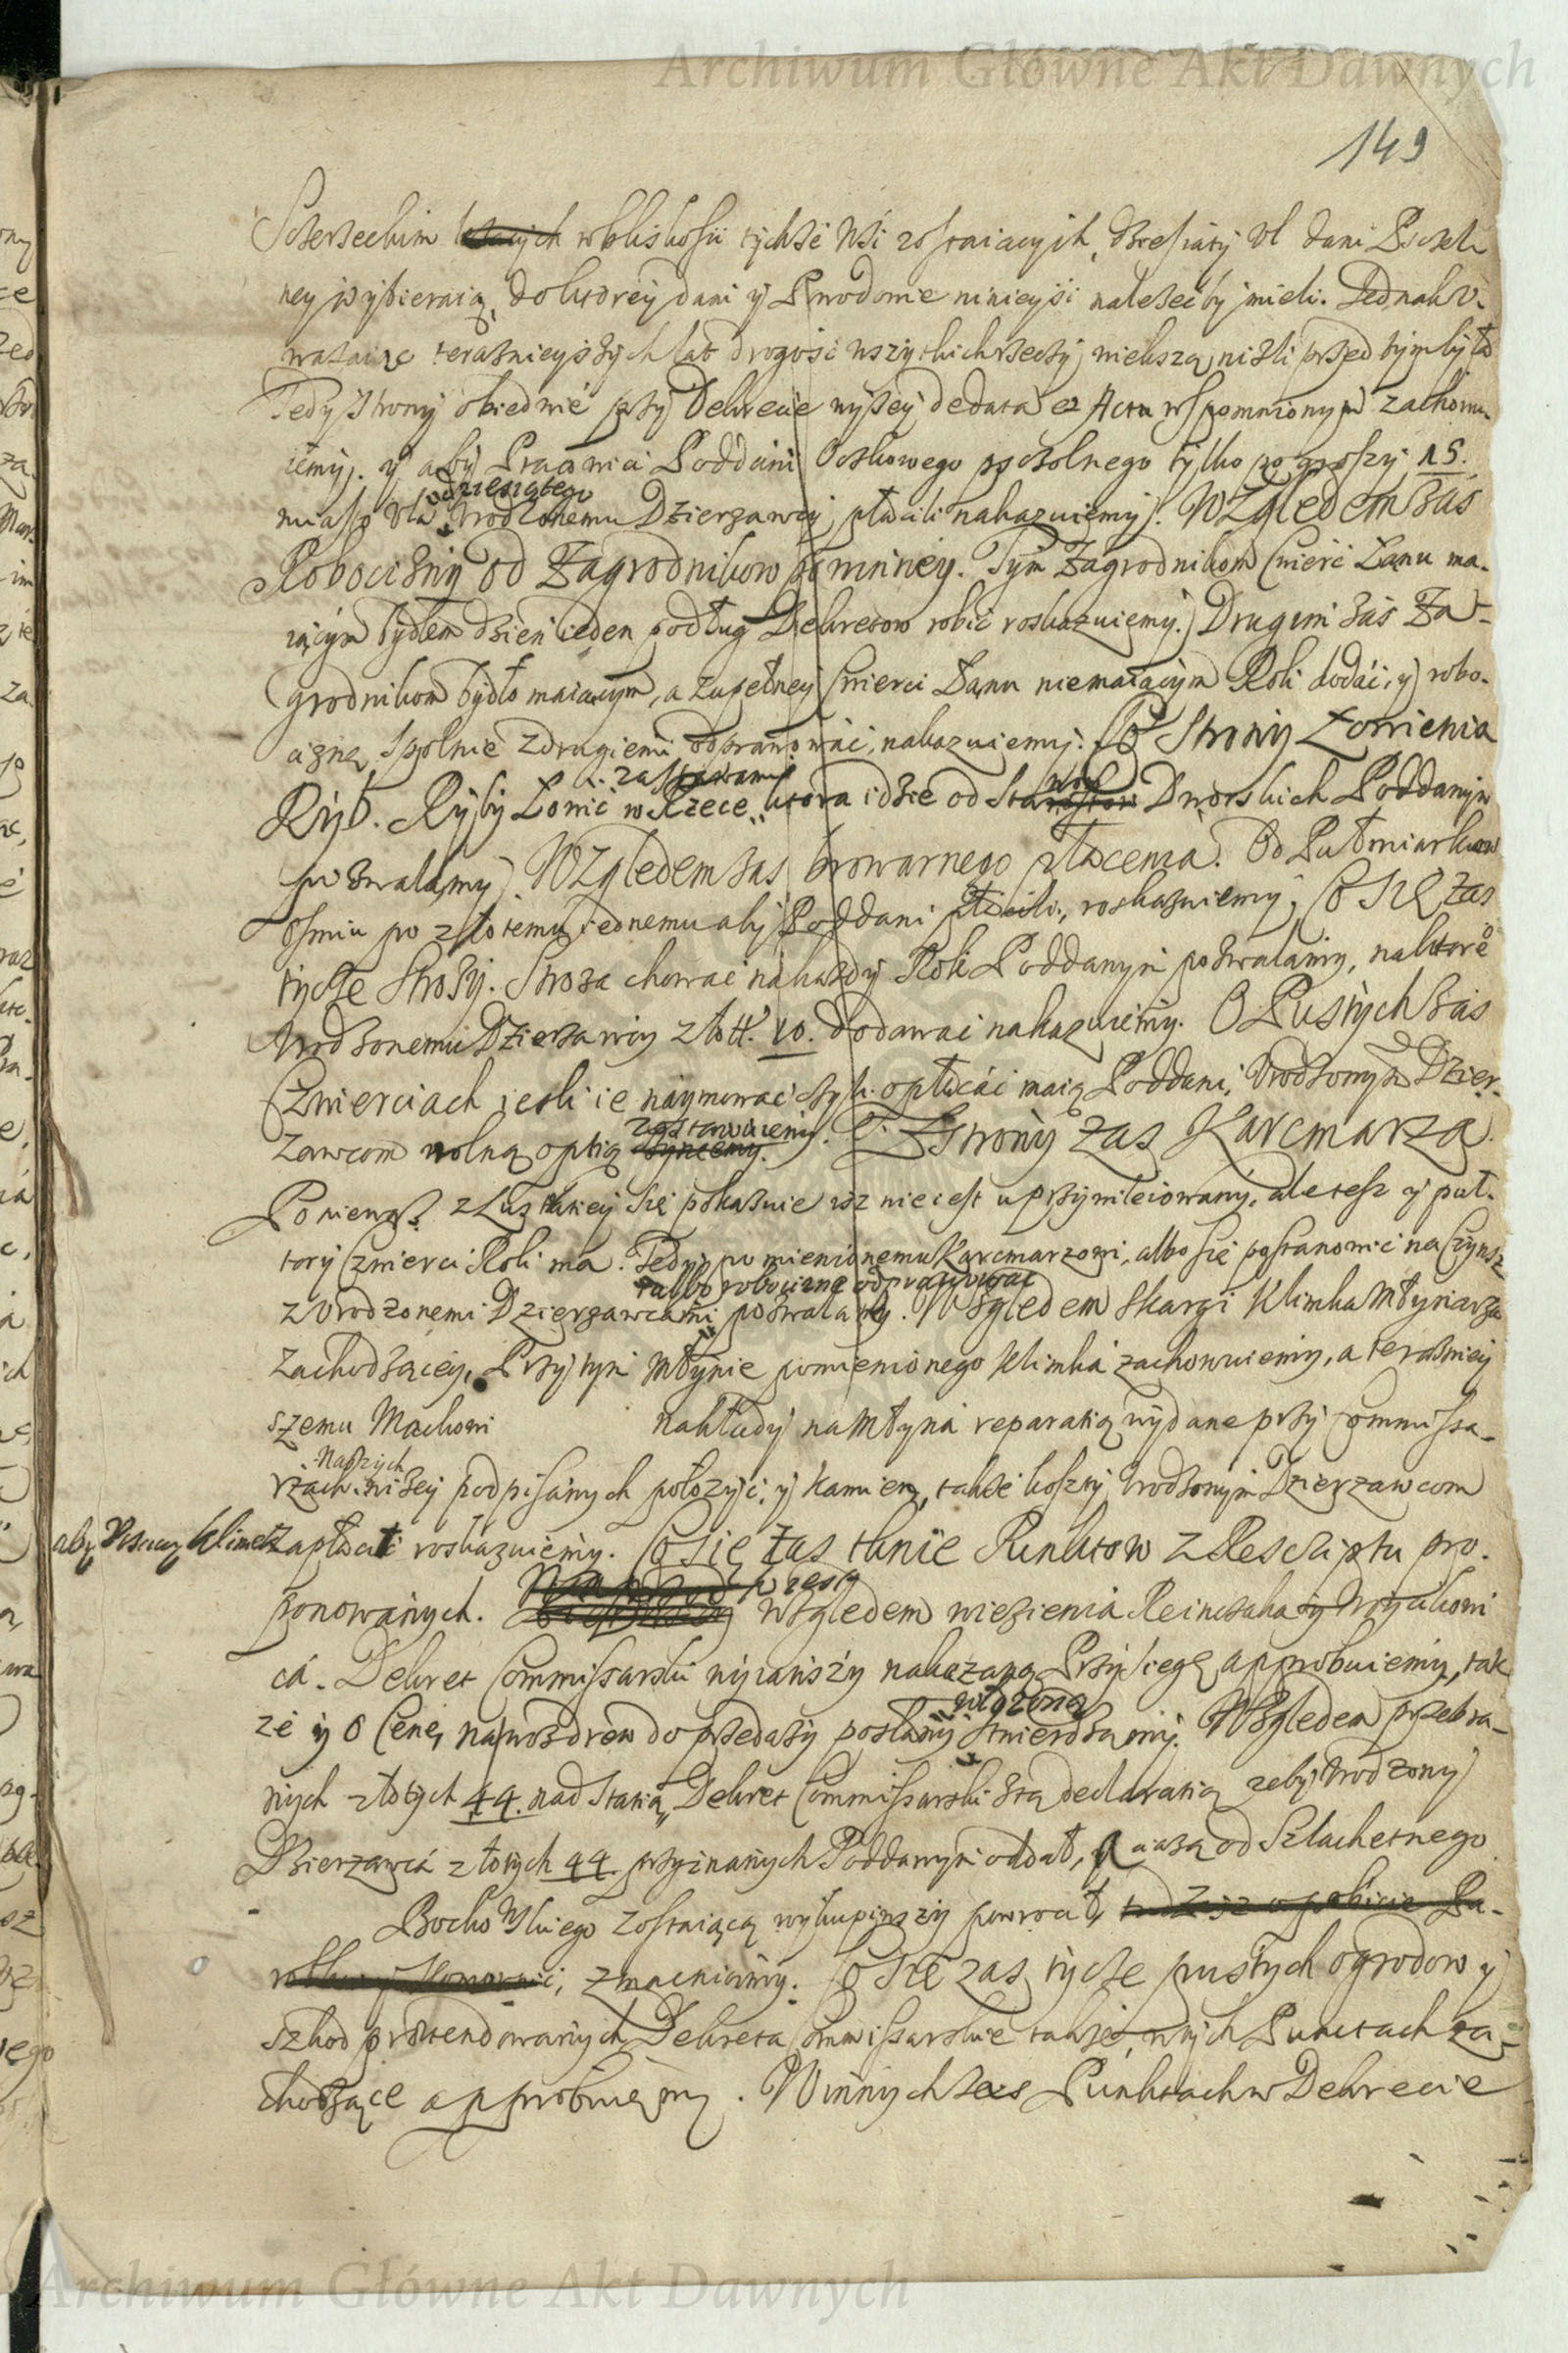 Archiwum Główne Akt Dawnych
149
w bliskosci tychże Wsi zostaiących, dziesiąty Vl dani Pszczel
ney wybieraią, do ktorey dani y Pozwodowie ninieyśi należećby mieli. Jednak v-
ważaiąc teraznieyszych lat drogość wszytkich rzeczy, niekszą, niżli przed tym było
Tedy Strony obiedwie przy Dekrecie wyżey de data et Actu wspomnionym zachowu-
iemy. y aby Pracowici Poddani Oczkowego pszczolnego tylko po groszy 15.
dziesiątego
miasto Vla Vrodzonemu Dzierzawcy płacili nakazuiemy. Względem zas
Robocizny od Zagrodnikow powinney. Tym Zagrodnikom Cwierć Łanu ma-
iącym bydłem dzień ieden podług Dekretow robić roskazuiemy. Drugim zas Za-
grodnikom bydło maiącym, a zupełney Cwierci Łanu niemaiącym Roli dodać, y robo-
ciznę spolnie z drugiemi odprawować, nakazuiemy. Co Strony Łowienia
zastawami
Ryb. Ryby Łowić w Rzece, ktora idzie od Dworskich Poddanym
pozwalamy. Względem zas browarnego płacenia. Od Putmiarkow
ośmiu po złotemu iednemu aby Poddani płacili, roskazuiemy. Co się zas
tycze Stroży. Stroza chować na kazdy Rok Poddanym pozwalamy, na ktore°
Vrodzonemu Dzierzawcy złott. 10. dodawać nakazuiemy. O Pustych zas
Czwierciach iesli ie naymować czyli opłacać maią Poddani, Vrodzonym Dzier-
zostawuiemy
zawcom wolną optią. Z Strony zas Karcmarza.
Ponieważ z Lustratiey się pokazuie iż nie iest uprzywileiowany, ale tesz y puł-
tory Czwierci Roli ma. Tedy pomienionemu Karcmarzowi, albo się postanowić na Czynsz
albo robociznę odprawować
z Vrodzonemi Dzierzawcami pozwalamy. Względem skargi Klimka Młynarza
zachodzącey, Przy tym Młynie pomienionego Klimka zachowuiemy, a teraźniey
szemu Mackowi nakłady na Młyna reparatią wydane przy Commissa-
Naszych
rzach niżey podpisanych położyć, y kamien, także koszty Vrodzonym Dzierzawcom
aby Klimek zapłacił roskazuiemy. Co się zas tknie Punktow z Rescriptu pro-
ponowanych. Względem więzienia
ca. Dekret Commissarski nycansży nakazaną Przysięgę approbuiemy, tak
włożoną
ze y o Cenę, na woz drew do przedaży posłany stwierdzamy. Względem przebra-
nych złotych 44. nad Statią, Dekret Commissarski z tą declaratią zeby Vrodzony
Dzierzawca złotych 44. przyznanych Poddanym oddał, od Szlachetnego
zostaiącą wykupiwszy powrocił,
zmacniamy. Co się zas tycze pustych ogrodow y
szkod praetendowanych Dekreta Commissarskie także, w tych Punctach za-
chodzące approbuiemy. W innych zas Punktach w Dekrecie
Archiwum Główne Akt Dawnych